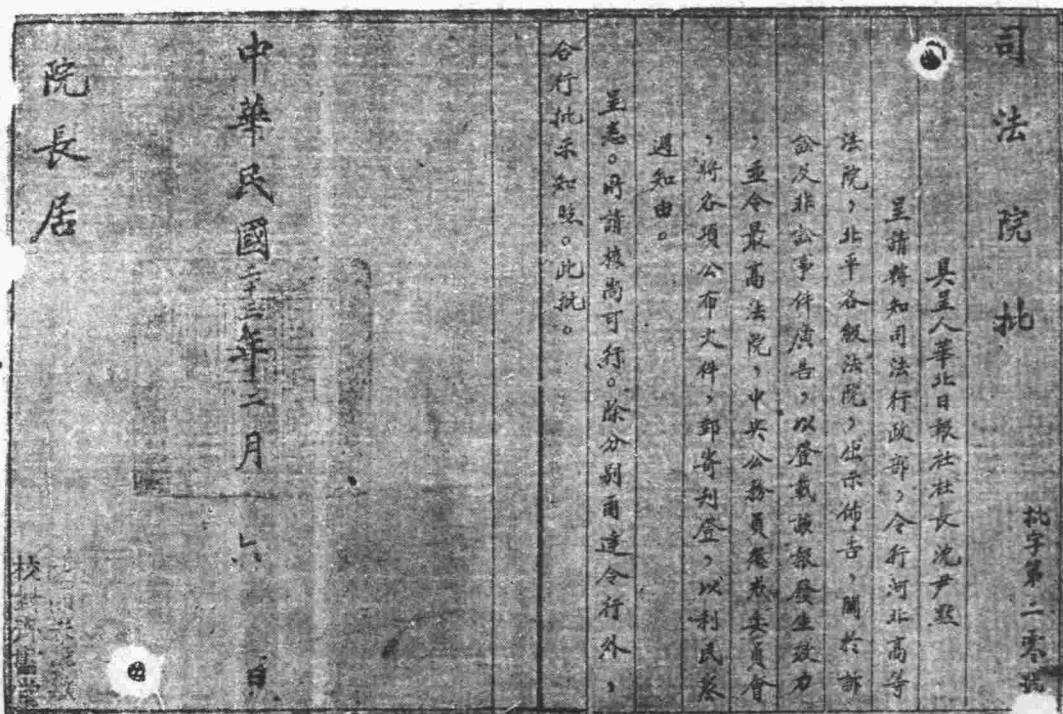 司法院批
批字第二零號
具呈人華北日報社社長沈尹默
呈請轉知司法行政部，令行河北高等
法院，北平各級法院，出示佈告，關於訴
訟及非訟事件廣告，以登載該報發生效力
，並令最高法院，中央公務員懲戒委員會
，將各項公布文件，郵寄刊登，以利民眾
週知由。
呈悉。所請核尚可行。除分別函達令行外，
合行批示知照。此批。
中華民國二十三年十二月六日
院長居
校對